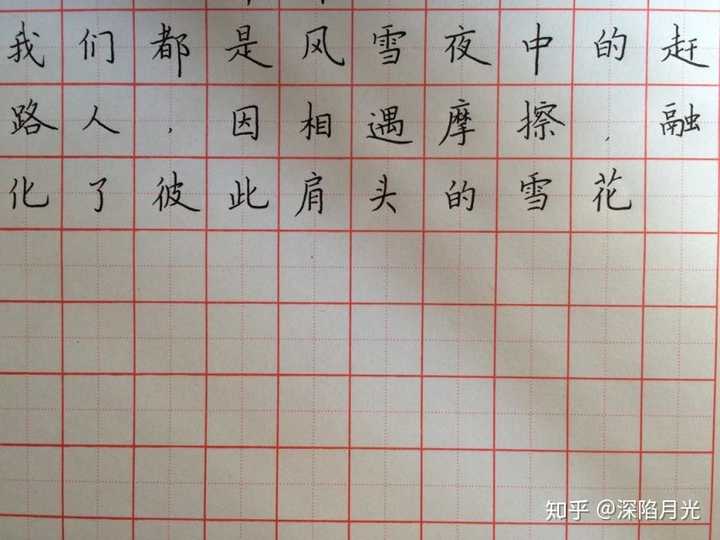 我们都是风雪夜中的赶
路人，因相遇摩擦，融
化了彼此肩头的雪花
知乎 @深陷月光